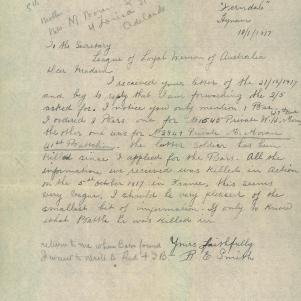 Mrs M Moran
Adelaide
"Ferndale"
Hynam
10/1/1917
To the Secretary
League of Loyal Women of Australia
Dear Madam
I received your letter of the 21/12/1917
and beg to reply that I am forwarding the 2/5
asked for. I notice you only mention 1 Bar,
I ordered 2 Bars. one for No 1545 Private W. H.
the other one was for No 2941 Private M. Moran
41st Battalion. the latter soldier has been
killed since I applied for the Bars. All the
information, we received was killed in Action
on the 5th October 1917 in France, this seems
very vague, I should be very pleased of the
smallest bit of information. If only to know
what Battle he was killed in
return to me when Bars found
I want to write to Red +
Yours faithfully
R E Smith